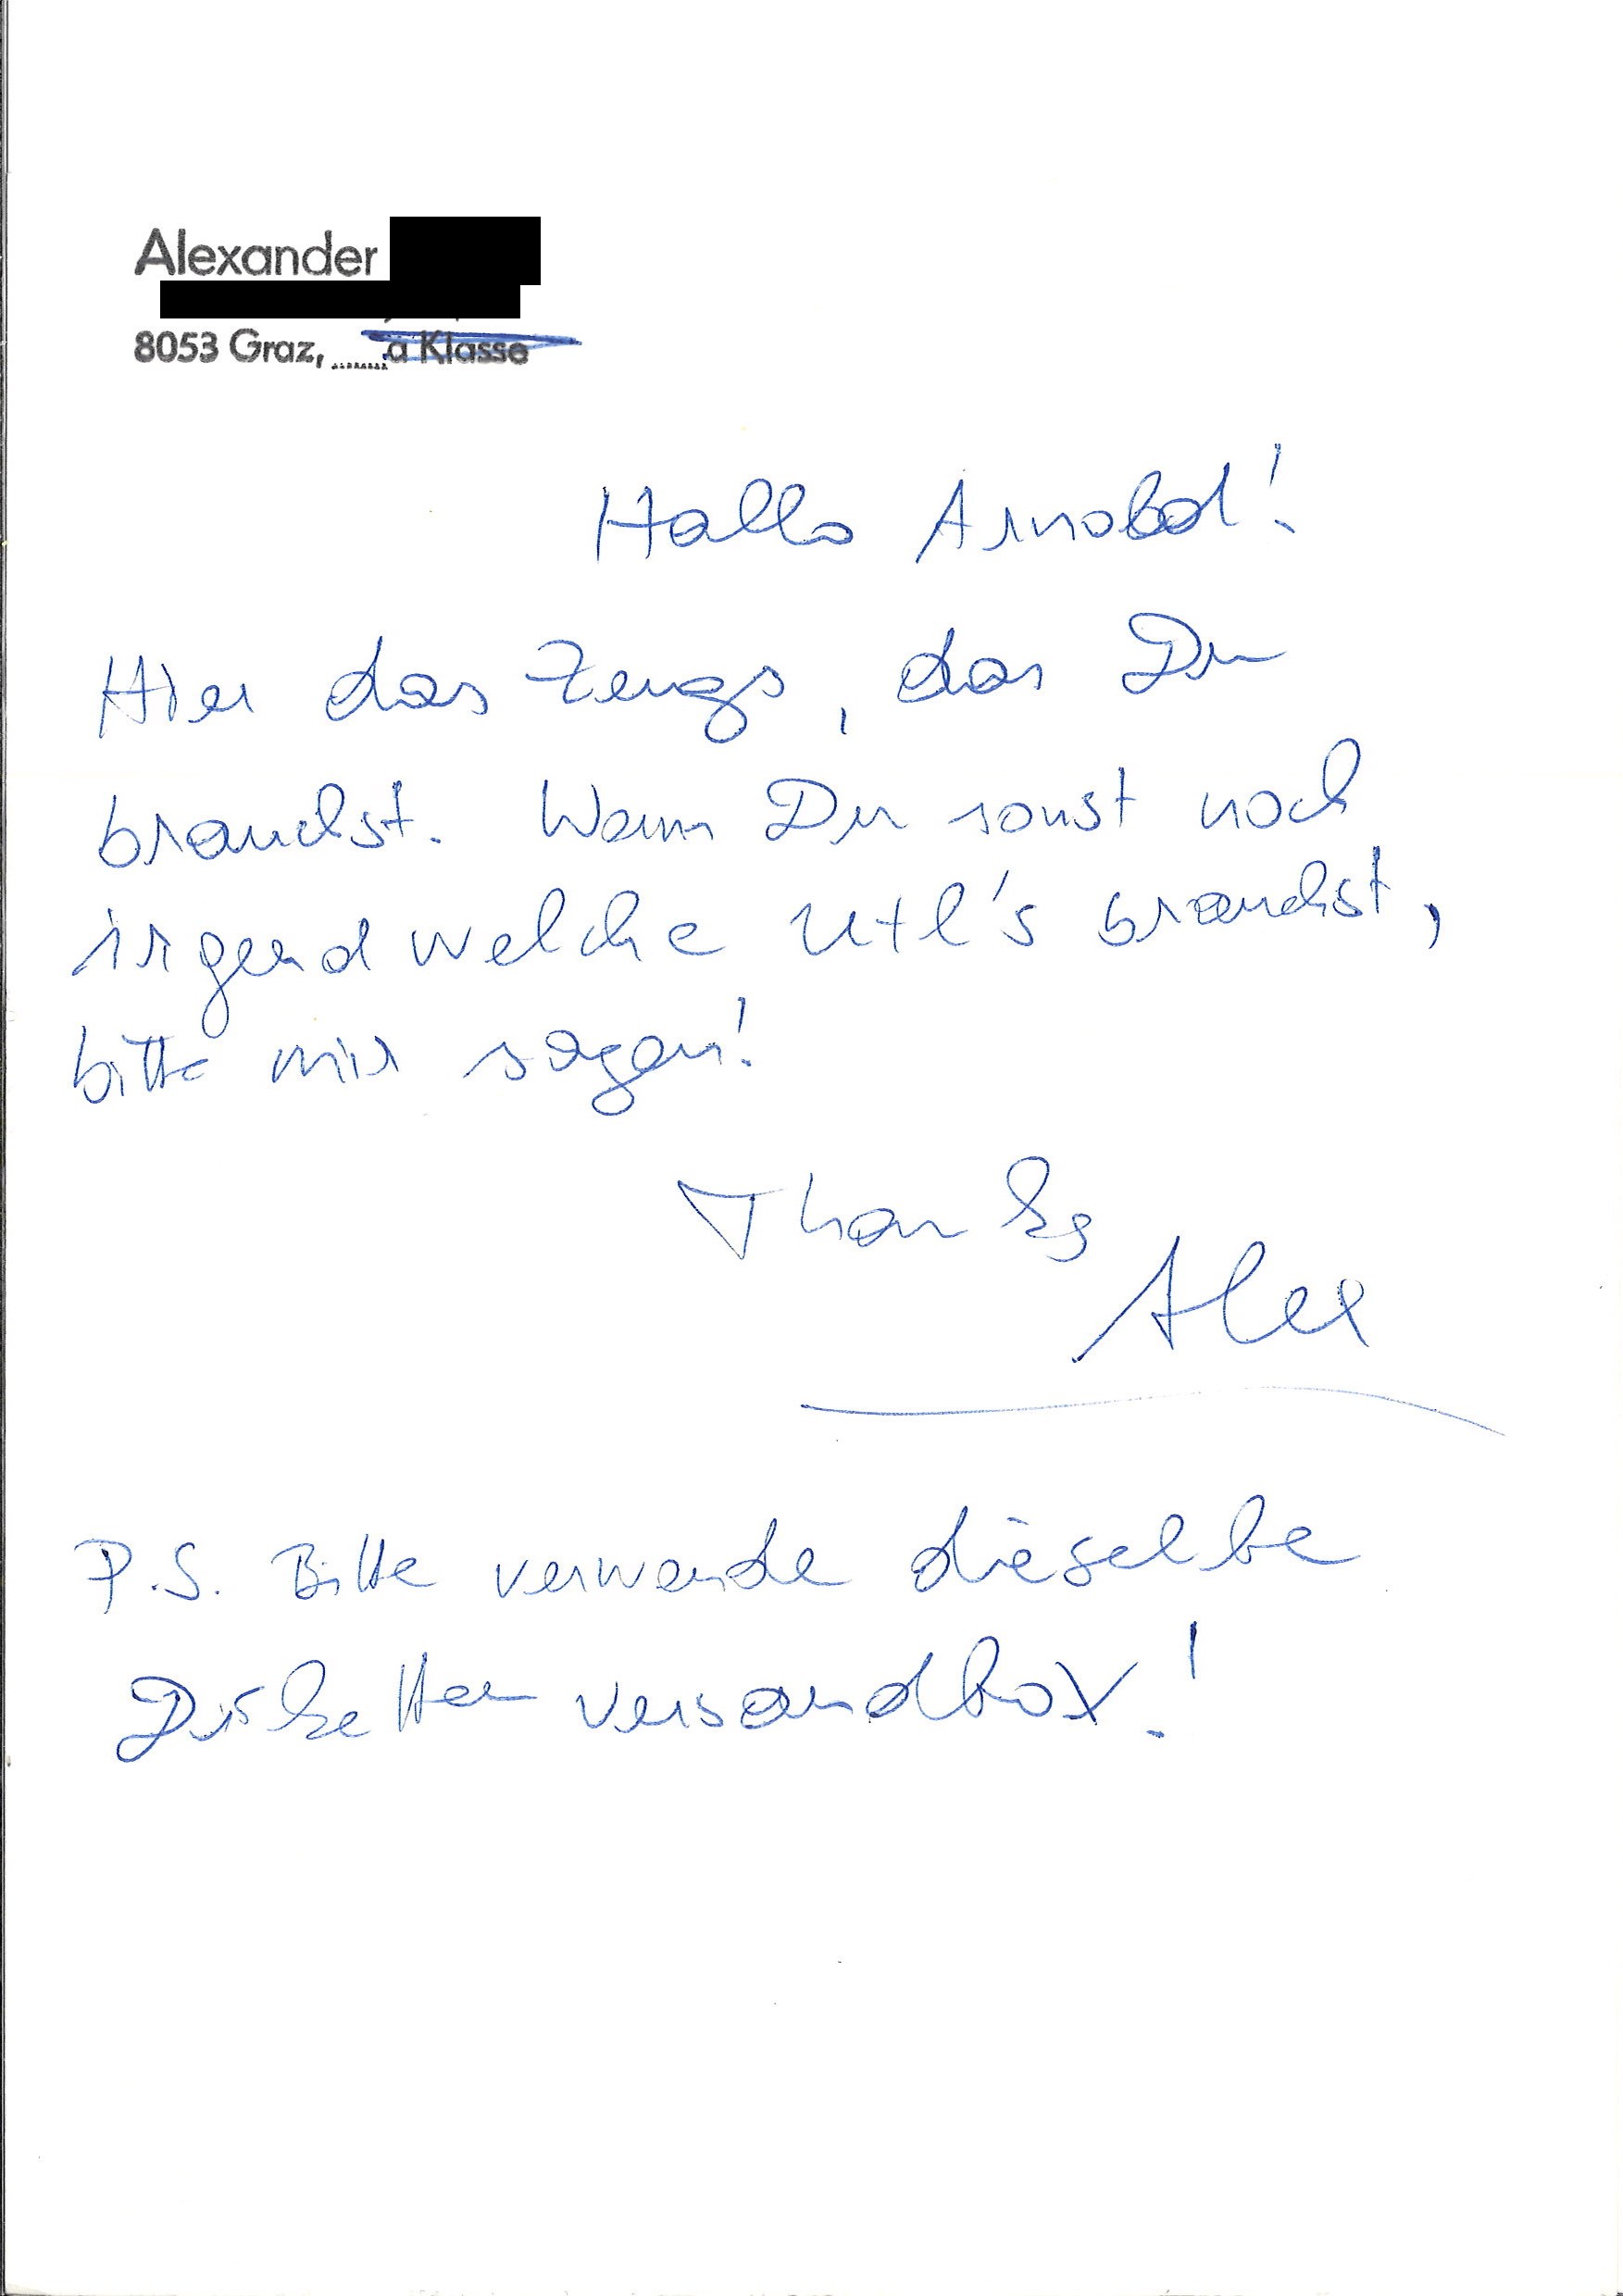 Alexander
8053 Graz, ......a Klasse
Hallo Arnold!
Hier das Zeugs, das Du
brauchst. Wenn Du sonst noch
irgendwelche Utl's brauchst,
bitte mir sagen!
Thanks
Alex
P.S. Bitte verwende dieselbe
Disketten versandbox!